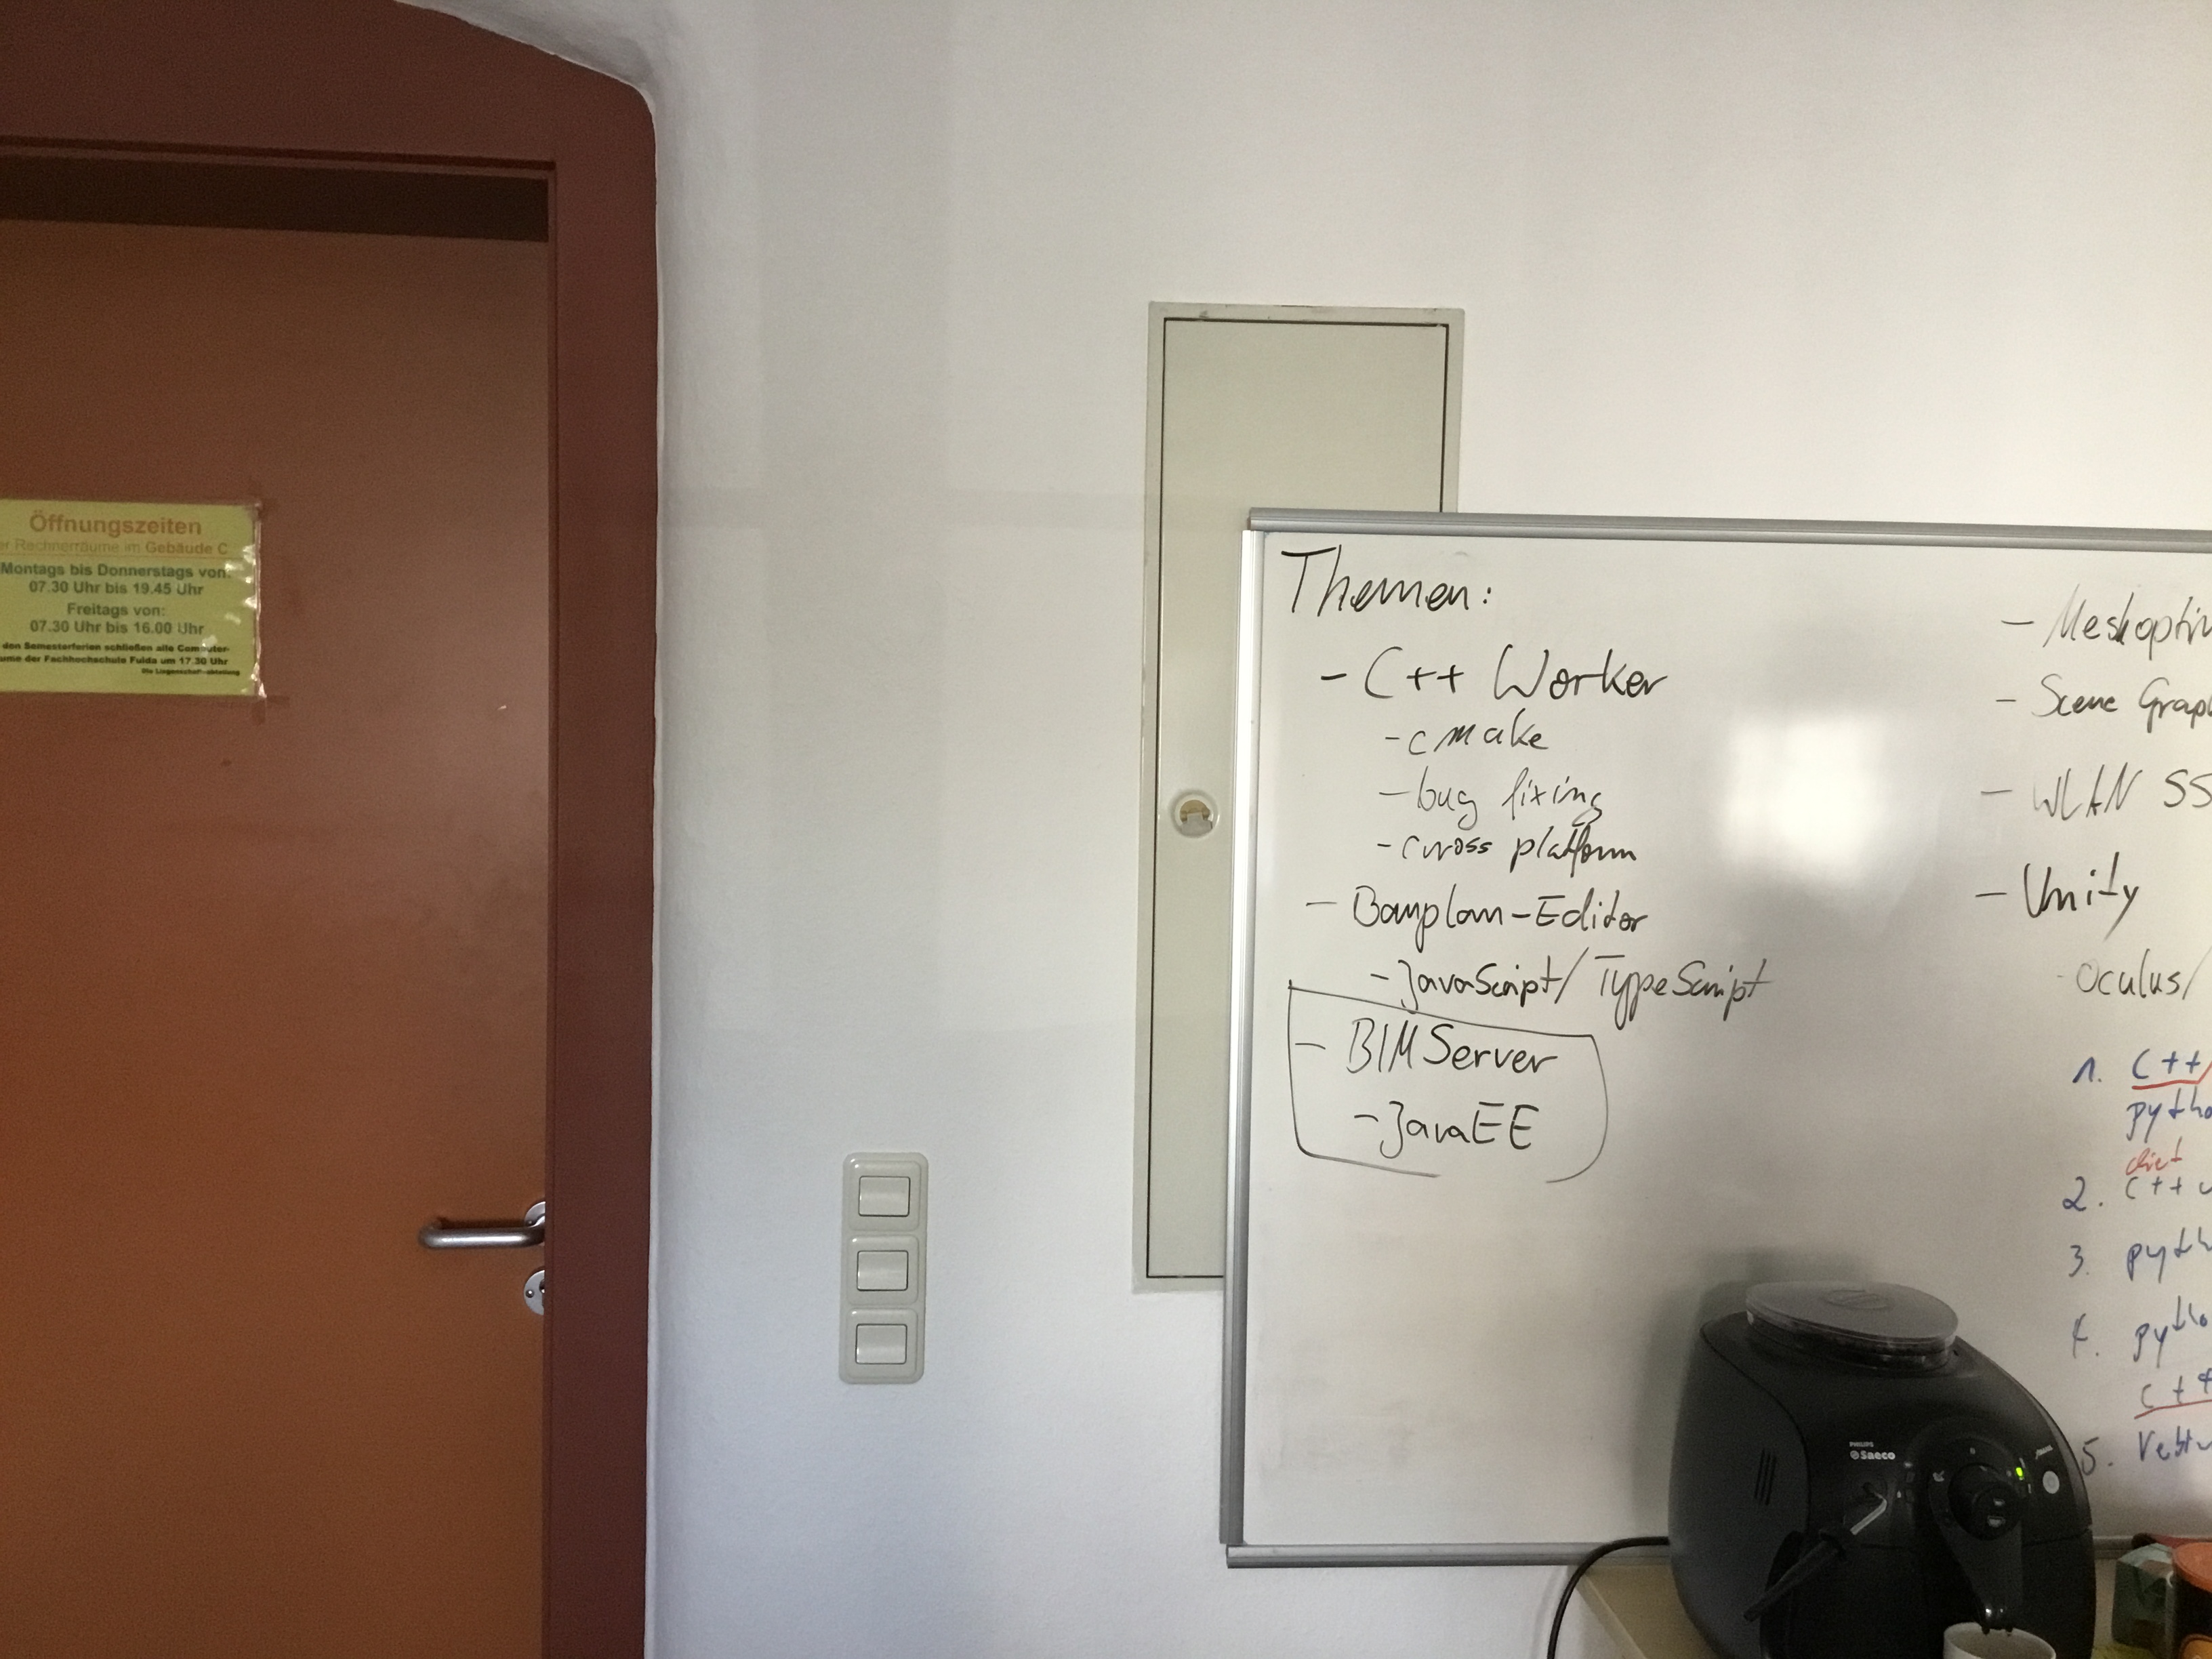 Öffnungszeiten
er Rechnerräume im Gebäude C
Montags bis Donnerstags von:
07.30 Uhr bis 19.45 Uhr
Freitags von:
07.30 Uhr bis 16.00 Uhr
den Semesterferien schließen alle Computer-
ume der Fachhochschule Fulda um 17.30 Uhr
Die Liegenschaftsabteilung
Themen:
- C++ Worker
- cmake
- bug fixing
- cross platform
- Bauplan-Editor
- JavaScript/TypeScript
- BIMServer
- JavaEE
- Meshoptim
- Scene Graph
- WLAN SS
- Unity
- Oculus/
1. C++/
pytho
2. C++
3. pyth
4. pytho
C++
5.
PHILIPS
Saeco